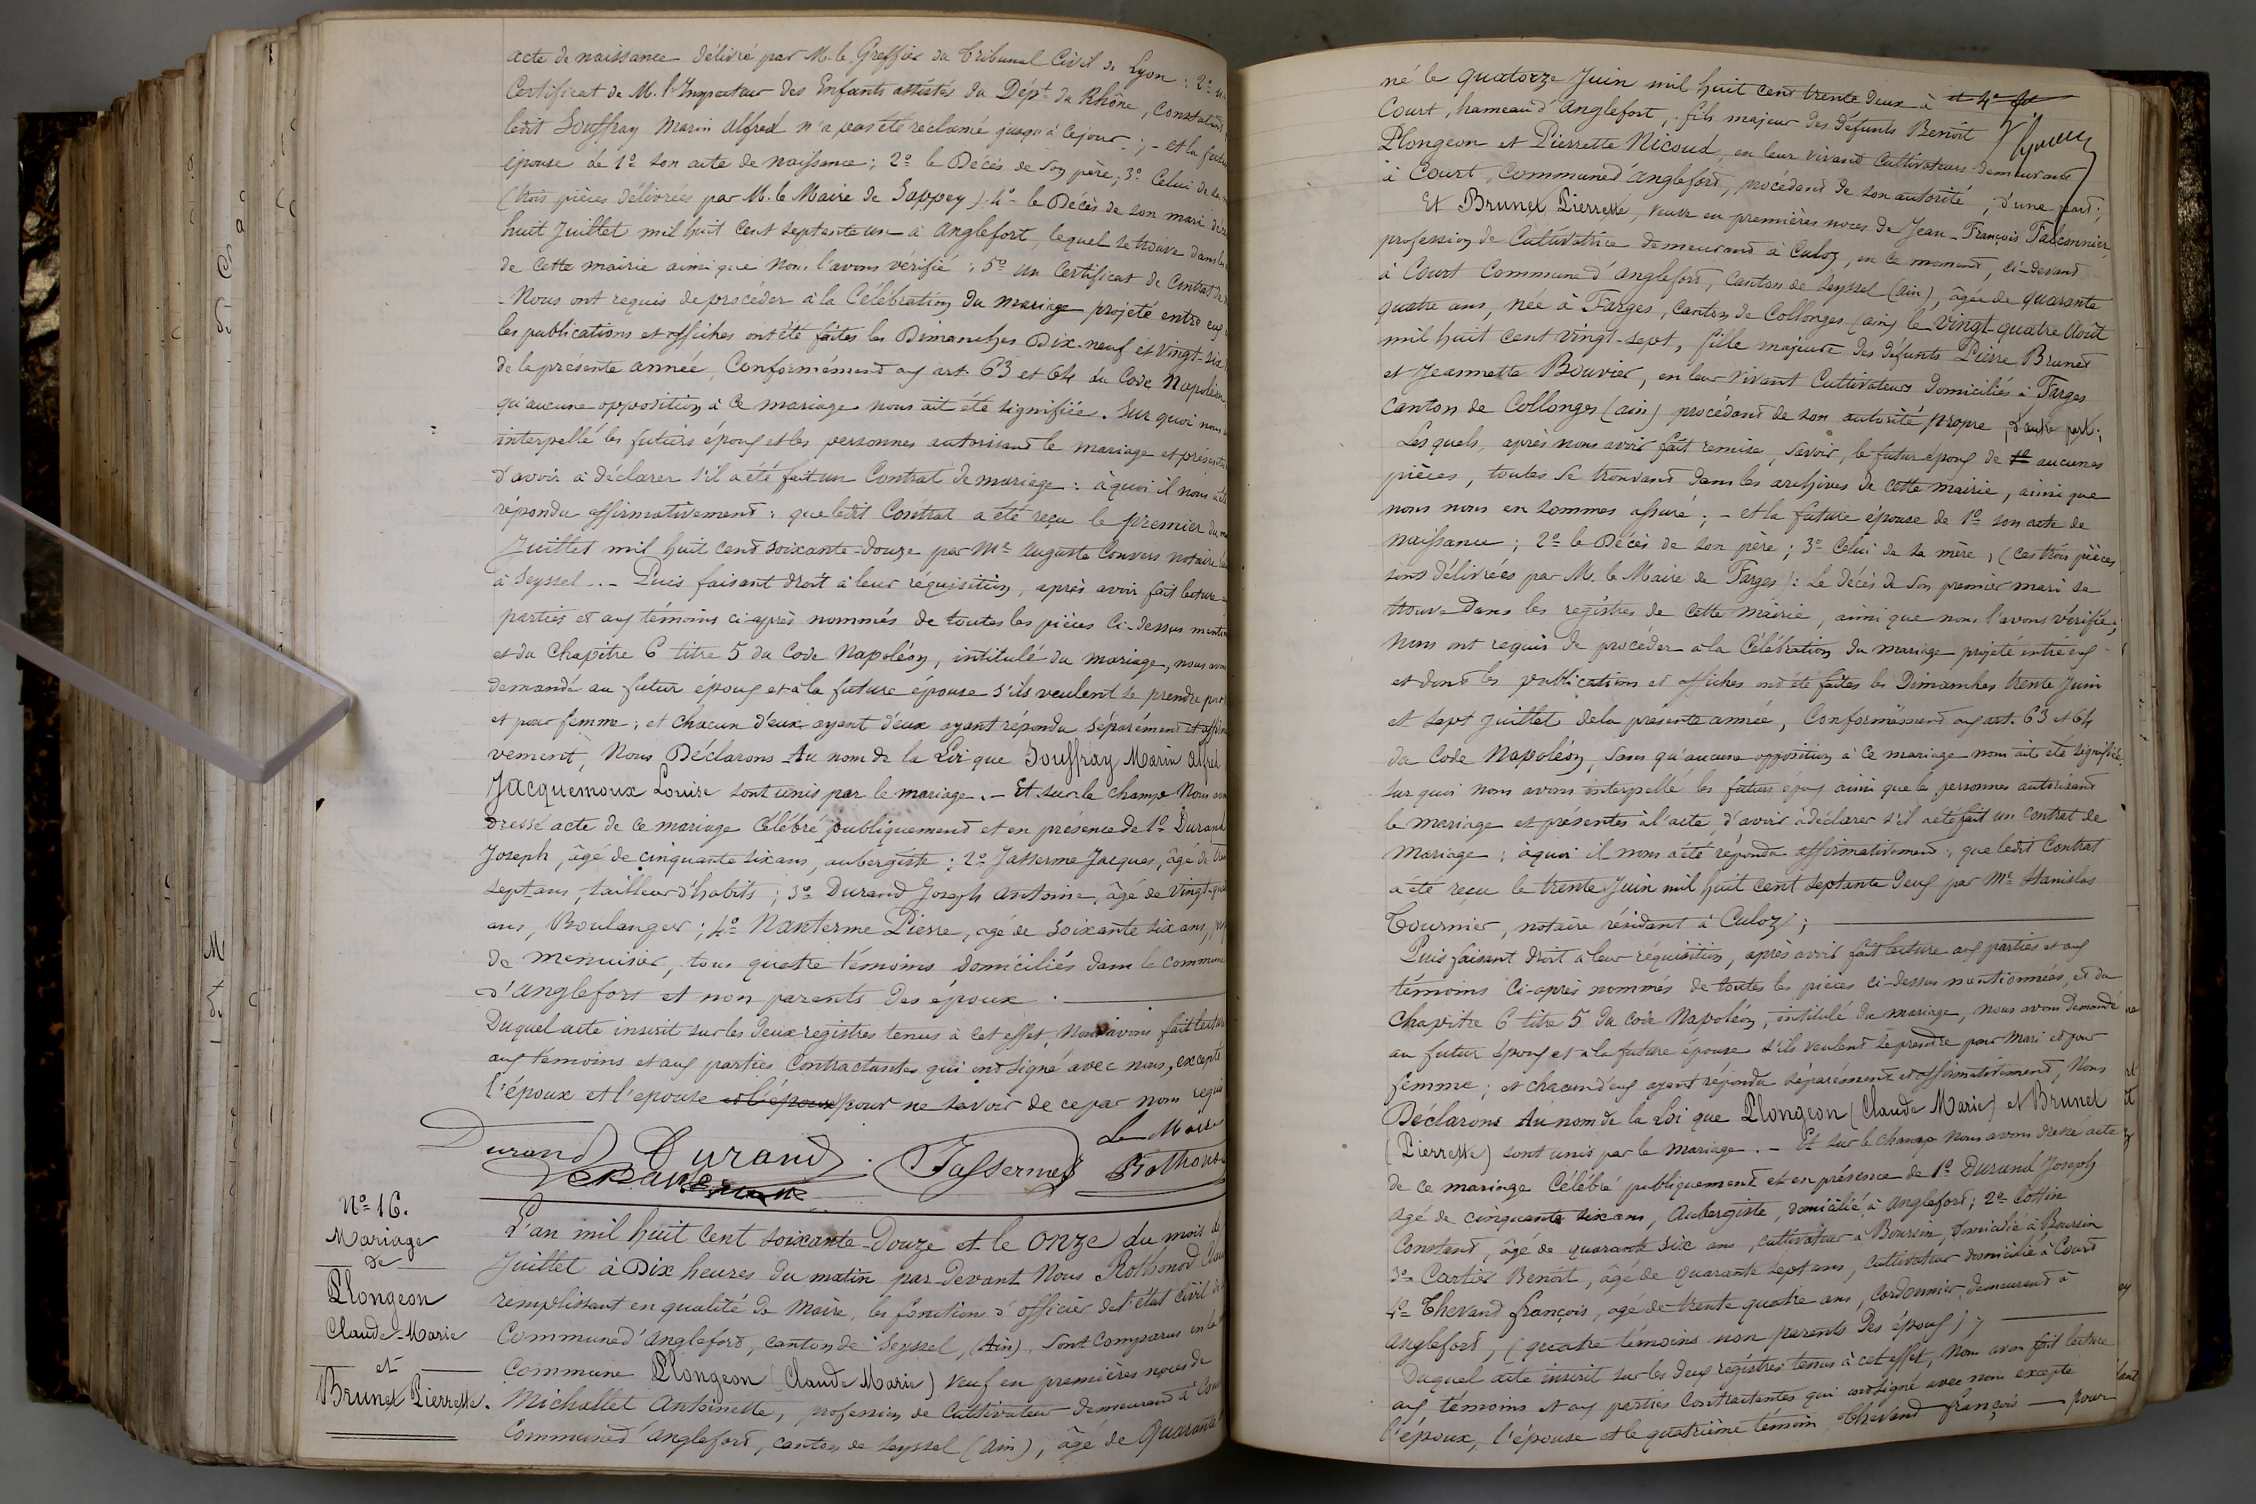 acte de naissance délivré par M. le Greffier du Tribunal Civil de Lyon : 2º u
Certificat de M. l'Inspecteur des Enfants assistés du Dépt du Rhône, Constatant
ledit Souffray Marin Alfred n'a pas été réclamé jusqu'à ce jour. ; - et la future
épouse de 1º son acte de naissance ; 2º le Décès de son père ; 3º Celui de sa
(trois pièces délivrées par M. le Maire de Sappey) 4º le Décès de son mari
huit Juillet mil huit cent septante un à Anglefort, lequel se trouve dans les
de cette mairie ainsi que nous l'avons vérifié ; 5º un Certificat de Contrat de
- Nous ont requis de procéder à la Célébration du mariage projeté entre eux
les publications et affiches ont été faites les Dimanches Dix-neuf et Vingt-six
de la présente année, Conformément aux art. 63 et 64 du Code Napoléon
qu'aucune opposition à ce mariage nous ait été signifiée. Sur quoi nous
interpellé les futurs époux et les personnes autorisant le mariage et présentes
d'avoir à déclarer s'il a été fait un Contrat de mariage : à quoi il nous a été
répondu affirmativement : que ledit Contrat a été reçu le premier du
Juillet mil huit cent soixante-douze par Me Auguste Convers notaire
à Seyssel. - Puis faisant droit à leur réquisition, après avoir fait lecture
parties et aux témoins ci-après nommés de toutes les pièces ci-dessus
et du Chapitre 6 titre 5 du Code Napoléon, intitulé du mariage, nous avons
demandé au futur époux et à la future épouse s'ils veulent se prendre pour
et pour femme ; et chacun d'eux ayant d'eux ayant répondu séparément et affirmati
vement, Nous Déclarons Au nom de la Loi que Souffray Marin Alfred
Jacquemoux Louise sont unis par le mariage. - Et sur le champ Nous avons
dressé acte de ce mariage Célébré publiquement et en présence de 1º Durand
Joseph, âgé de cinquante six ans, aubergiste ; 2º Jasserme Jacques, âgé de
sept ans, tailleur d'habits ; 3º Durand Joseph Antoine, âgé de Vingt-
ans, Boulanger ; 4º Nanterme Pierre, âgé de soixante six ans,
de menuisier, tous quatre témoins domiciliés dans la commune
d'Anglefort et non parents des époux.
Duquel acte inscrit sur les deux registres tenus à cet effet, Nous avons fait lecture
aux témoins et aux parties Contractantes qui ont signé avec nous, excepté
l'époux et l'épouse et l'époux pour ne savoir de ce par nous requis
Le Maire
Durand Durand Jasserme Rothonod
Nanterme
Nº 16.
Mariage
de
Plongeon
Claude-Marie
et
Brunet Pierrette.
L'an mil huit cent soixante-Douze et le Onze du mois de
Juillet à Dix heures du matin par devant Nous Rothonod
remplissant en qualité de Maire, les fonctions d'officier de l'état civil de
Commune d'Anglefort, canton de Seyssel, (Ain). Sont Comparus en la
Commune Plongeon (Claude Marie) Veuf en premières noces de
Michallet Antoinette, profession de Cultivateur demeurant à Court
Commune d'Anglefort, canton de Seyssel (Ain), âgé de Quarante
né le quatorze Juin mil huit cent trente deux à
Court, hameau d'Anglefort, fils majeur des défunts Benoît
Plongeon et Pierrette Nicoud, en leur vivant Cultivateurs demeurant
à Court, Commune d'Anglefort, procédant de son autorité, d'une part ;
Et Brunet Pierrette, veuve en premières noces de Jean-François Falconnier,
profession de Cultivatrice demeurant à Culoz, en ce moment, ci-devant
à Court Commune d'Anglefort, Canton de Seyssel (Ain), âgée de quarante
quatre ans, née à Farges, Canton de Collonges (Ain) le Vingt-quatre Août
mil huit cent vingt-sept, fille majeure des défunts Pierre Brunet
et Jeannette Bouvier, en leur vivant Cultivateurs domiciliés à Farges
Canton de Collonges (Ain) procédant de son autorité propre, d'autre part ;
Lesquels, après nous avoir fait remise, savoir, le futur époux de aucunes
pièces, toutes se trouvant dans les archives de cette mairie, ainsi que
nous nous en sommes assuré ; - et la future épouse de 1º son acte de
naissance ; 2º le Décès de son père ; 3º Celui de sa mère ; (ces trois pièces
sont délivrées par M. le Maire de Farges) : Le décès de son premier mari se
trouve dans les registres de cette mairie, ainsi que nous l'avons vérifié ;
Nous ont requis de procéder à la Célébration du mariage projeté entre eux
et dont les publications et affiches ont été faites les Dimanches trente Juin
et sept Juillet de la présente année, Conformément aux art. 63 et 64
du Code Napoléon, sans qu'aucune opposition à ce mariage nous ait été signifiée.
Sur quoi nous avons interpellé les futurs époux ainsi que les personnes autorisant
le mariage et présentes à l'acte, d'avoir à déclarer s'il a été fait un contrat de
Mariage ; à quoi il nous a été répondu affirmativement ; que ledit Contrat
a été reçu le trente Juin mil huit cent septante deux par Me Stanislas
Tournier, notaire résidant à Culoz ;
Puis faisant droit à leur réquisition, après avoir fait lecture aux parties et aux
témoins ci-après nommés de toutes les pièces ci-dessus mentionnées, et du
Chapitre 6 titre 5 du Code Napoléon, intitulé du mariage, nous avons demandé
au futur époux et à la future épouse s'ils veulent se prendre pour Mari et pour
femme ; et chacun d'eux ayant répondu séparément et affirmativement, Nous
Déclarons Au nom de la Loi que Plongeon (Claude Marie) et Brunet
(Pierrette) sont unis par le mariage. - Et sur le champ Nous avons dressé acte
de ce mariage Célébré publiquement et en présence de 1º Durand Joseph
âgé de cinquante six ans, Aubergiste, domicilié à Anglefort ; 2º Cottin
Constant, âgé de quarante six ans, cultivateur à Boursin, domicilié à Boursin
3º Cartier Benoît, âgé de Quarante sept ans, Cultivateur domicilié à Court
4º Thevand François, âgé de trente quatre ans, Cordonnier, demeurant à
Anglefort, (quatre témoins non parents des époux) ;
Duquel acte inscrit sur les deux registres tenus à cet effet, Nous avons fait lecture
aux témoins et aux parties Contractantes qui ont signé avec nous excepté
l'époux, l'épouse et le quatrième témoin Thevand François — pour